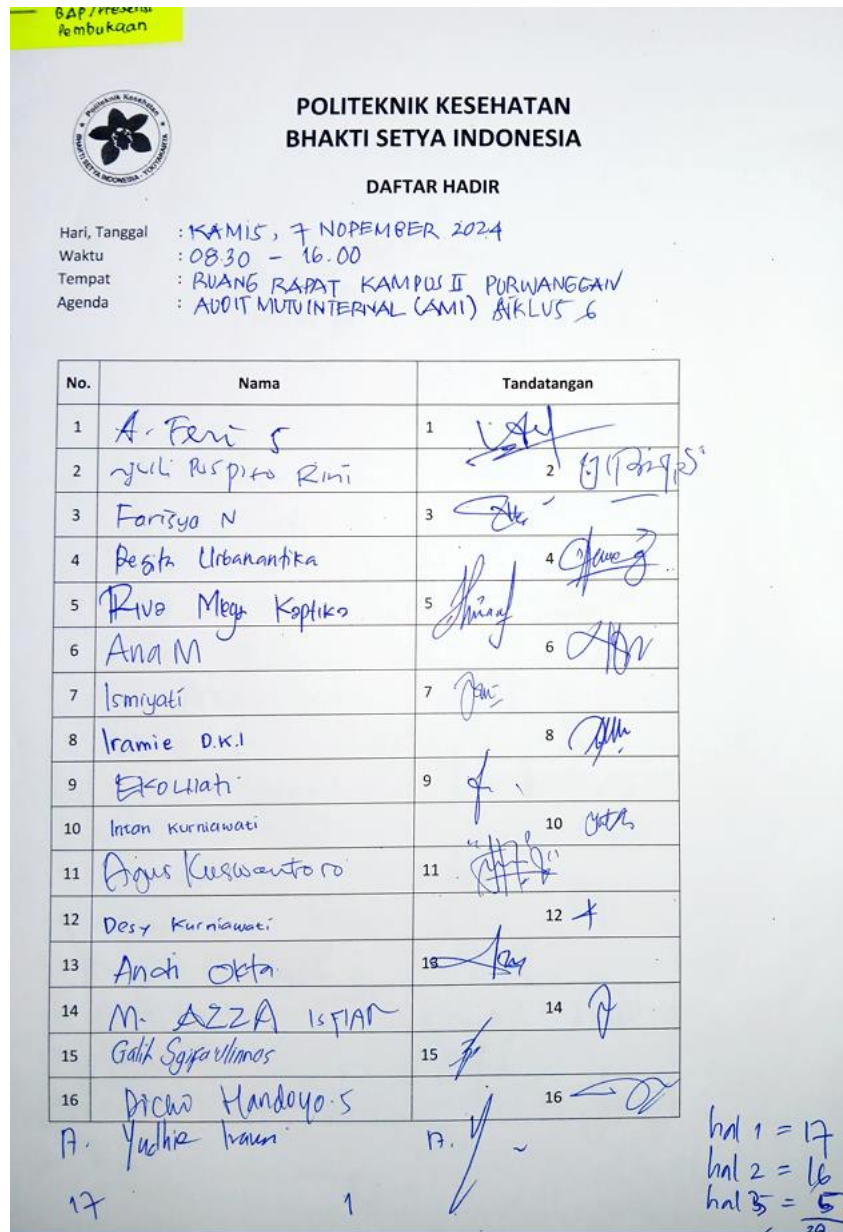 BAP/Presensi
Pembukaan
Politeknik Kesehatan
BHAKTI SETYA INDONESIA - YOGYAKARTA
POLITEKNIK KESEHATAN
BHAKTI SETYA INDONESIA
DAFTAR HADIR
Hari, Tanggal : KAMIS, 7 NOPEMBER 2024
Waktu : 08.30 - 16.00
Tempat : RUANG RAPAT KAMPUS II PURWANGGAN
Agenda : AUDIT MUTU INTERNAL (AMI) SIKLUS 6
No. Nama Tandatangan
1 A. Feri S 1
2 Yuli Puspito Rini 2
3 Farisya N 3
4 Resita Urbanantika 4
5 Riva Mega Kaptika 5
6 Ana M 6
7 Ismiyati 7
8 Iramie D.K.I 8
9 Ekowati 9
10 Intan Kurniawati 10
11 Agus Kuswantoro 11
12 Desy Kurniawati 12
13 Andi Okta 13
14 M. AZZA 14
15 Galih 15
16 Dicho Handoyo.S 16
17. Yudhie 17.
hal 1 = 17
hal 2 = 16
hal 3 = 5
17 1